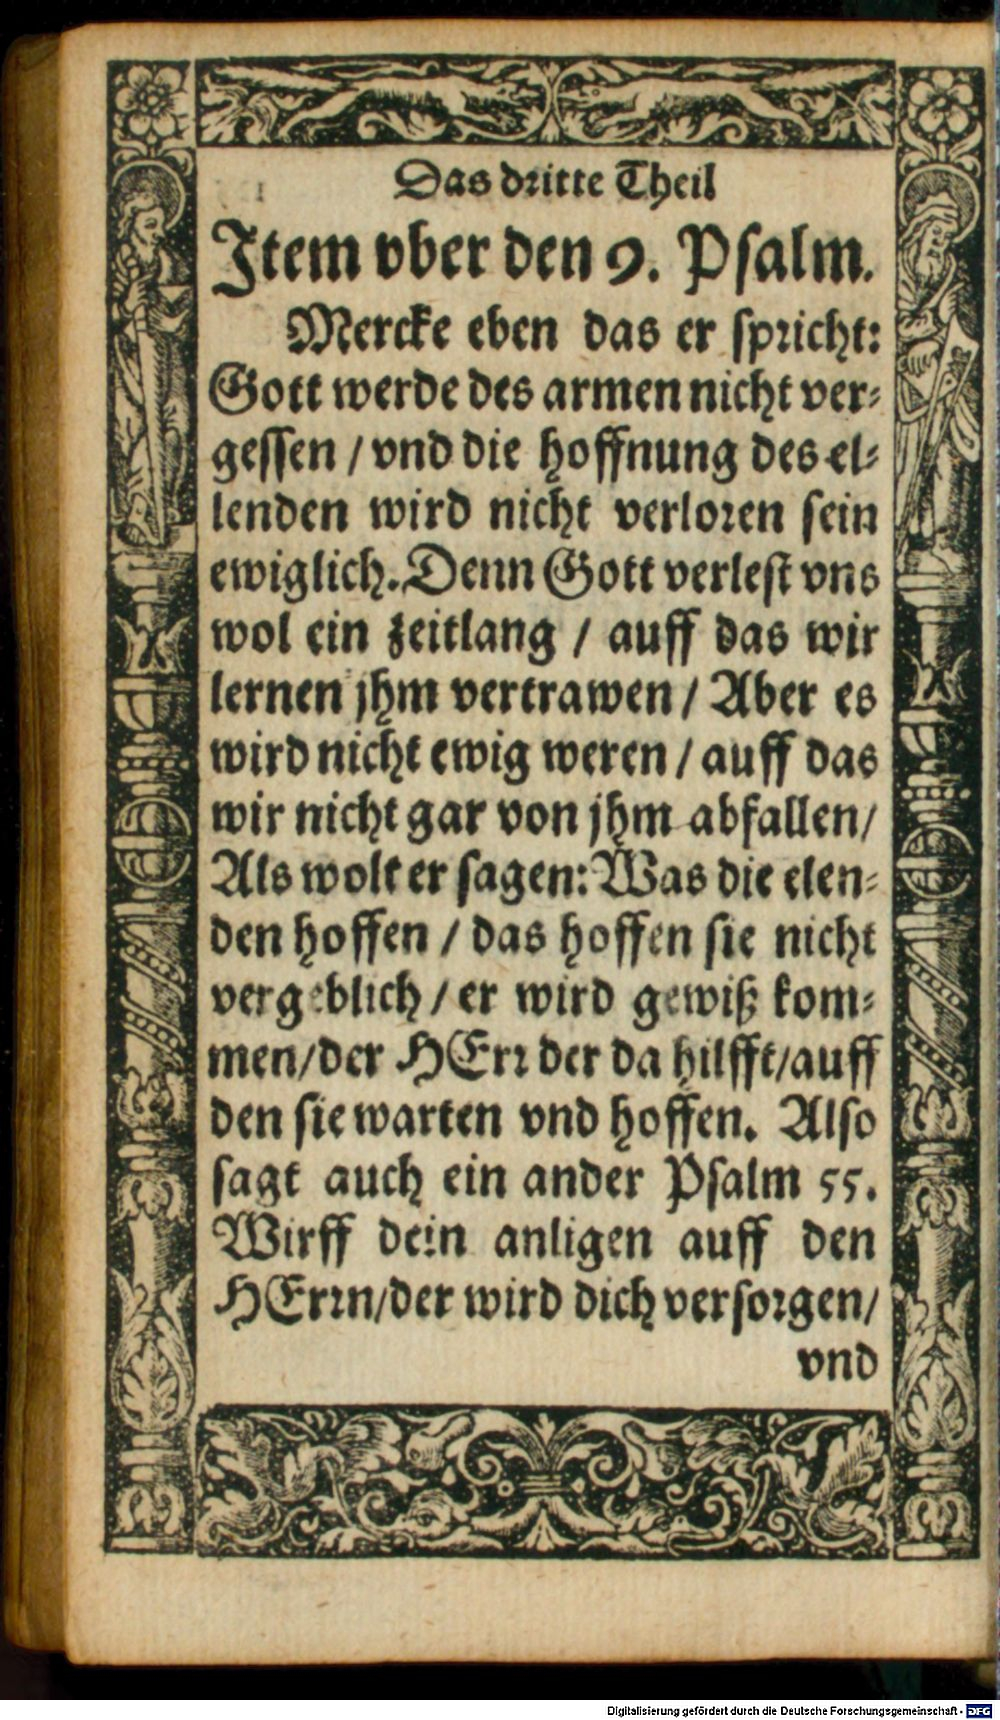 Das dritte Theil
Item vber den 9. Psalm.
Mercke eben das er spricht:
Gott werde des armen nicht ver-
gessen / vnd die hoffnung des el-
lenden wird nicht verloren sein
ewiglich. Denn Gott verlest vns
wol ein zeitlang / auff das wir
lernen jhm vertrawen / Aber es
wird nicht ewig weren / auff das
wir nicht gar von jhm abfallen /
Als wolt er sagen: Was die elen-
den hoffen / das hoffen sie nicht
vergeblich / er wird gewiß kom-
men / der HErr der da hilfft / auff
den sie warten vnd hoffen. Also
sagt auch ein ander Psalm 55.
Wirff dein anligen auff den
HErrn / der wird dich versorgen /
vnd
Digitalisierung gefördert durch die Deutsche Forschungsgemeinschaft - DFG